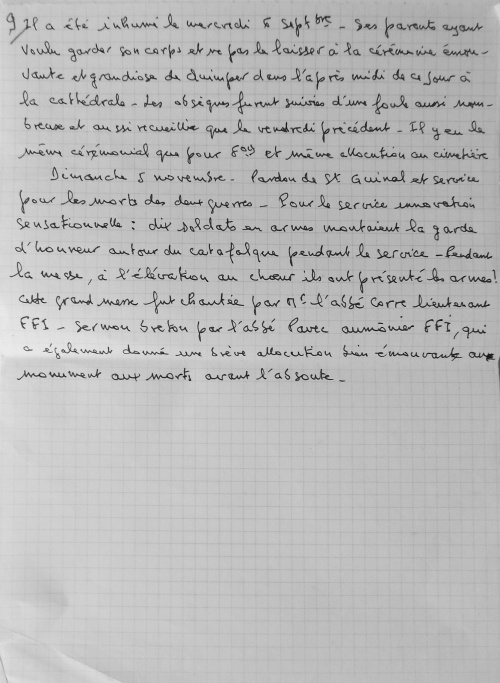 9/ Il a été inhumé le mercredi 6 Septbre - Ses parents ayant
voulu garder son corps et ne pas le laisser à la cérémonie émou-
vante et grandiose de Quimper dans l'après midi de ce jour à
la cathédrale - Les obsèques furent suivies d'une foule aussi nom-
breuse et aussi recueillie que le vendredi précédent - Il y eu le
même cérémonial que pour et même allocution au cimetière
Dimanche 5 novembre - Pardon de St Guinal et service
pour les morts des deux guerres - Pour le service innovation
sensationnelle : dix soldats en armes montaient la garde
d'honneur autour du catafalque pendant le service - Pendant
la messe, à l'élévation au chœur ils ont présenté les armes!
Cette grand messe fut chantée par Mr l'abbé Corre lieutenant
FFI - Sermon breton par l'abbé Pavec aumônier FFI, qui
a également donné une brève allocution bien émouvante au
monument aux morts avant l'absoute -